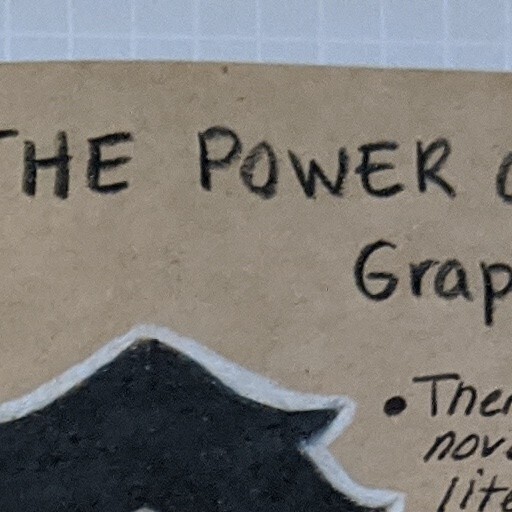 THE POWER
Grap
• Ther
nov
lite